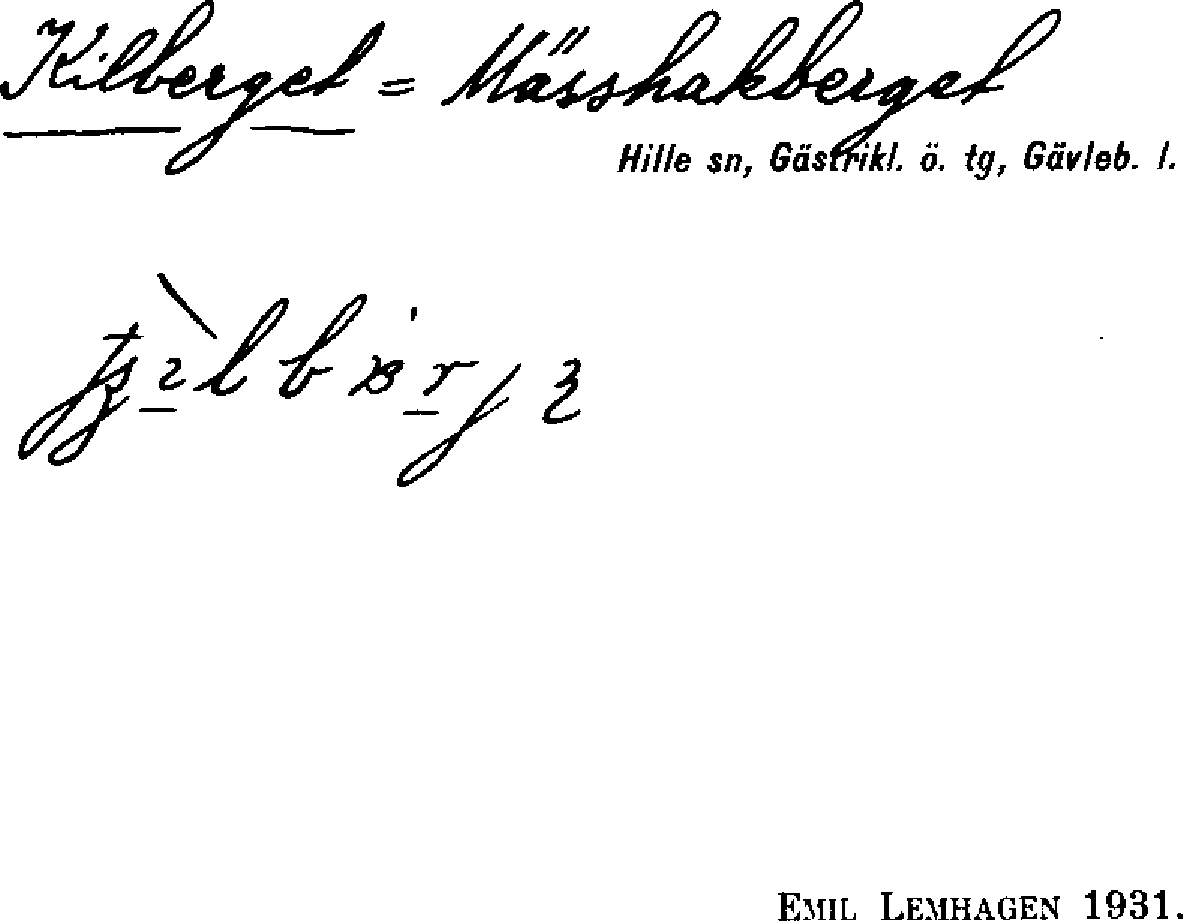 Kilberget = Mässhakberget
Hille sn, Gästrikl. ö. tg, Gävleb. l.
EMIL LEMHAGEN 1931.